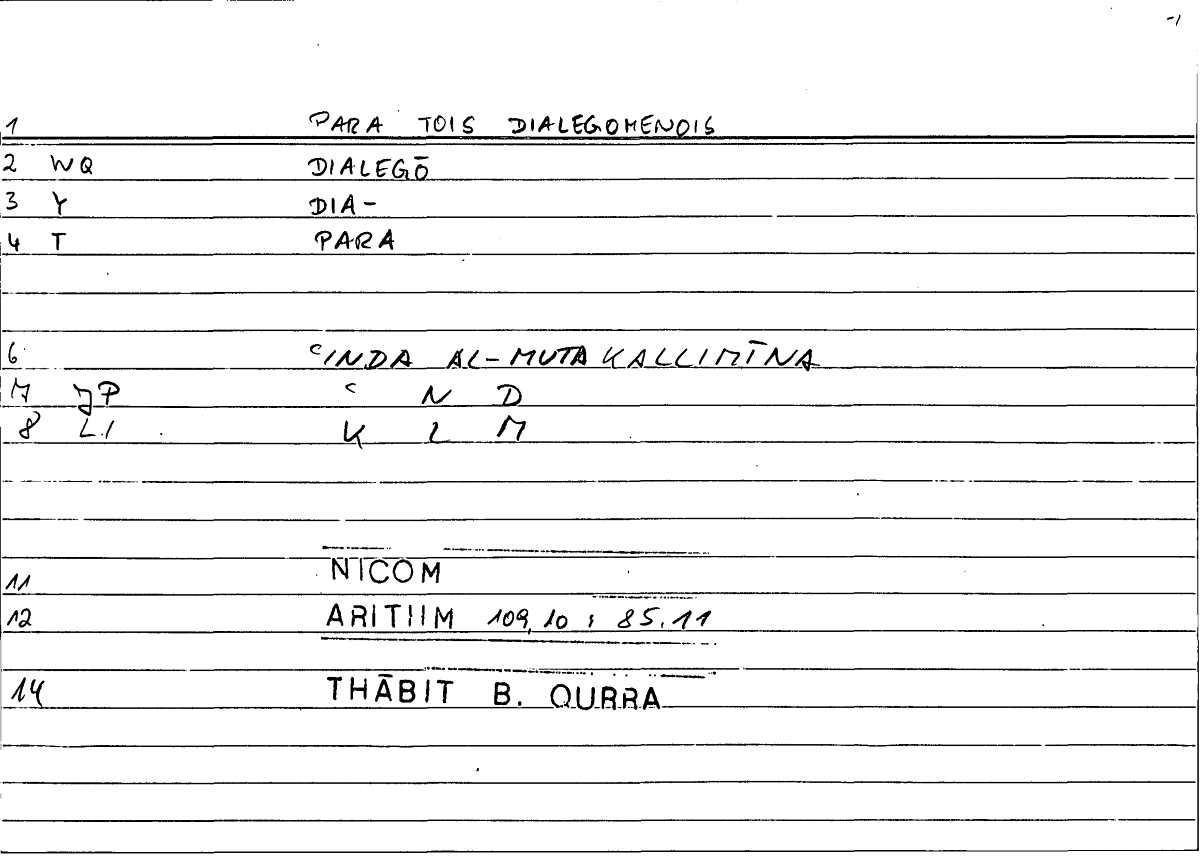 1 PARA TOIS DIALEGOMENOIS
2 WQ DIALEGŌ
3 Y DIA-
4 T PARA
6 ʿINDA AL-MUTAKALLIMĪNA
7 JP ʿ N D
8 LI K L M
11 NICOM
12 ARITHM 109,10 ; 85.11
14 THĀBIT B. QURRA